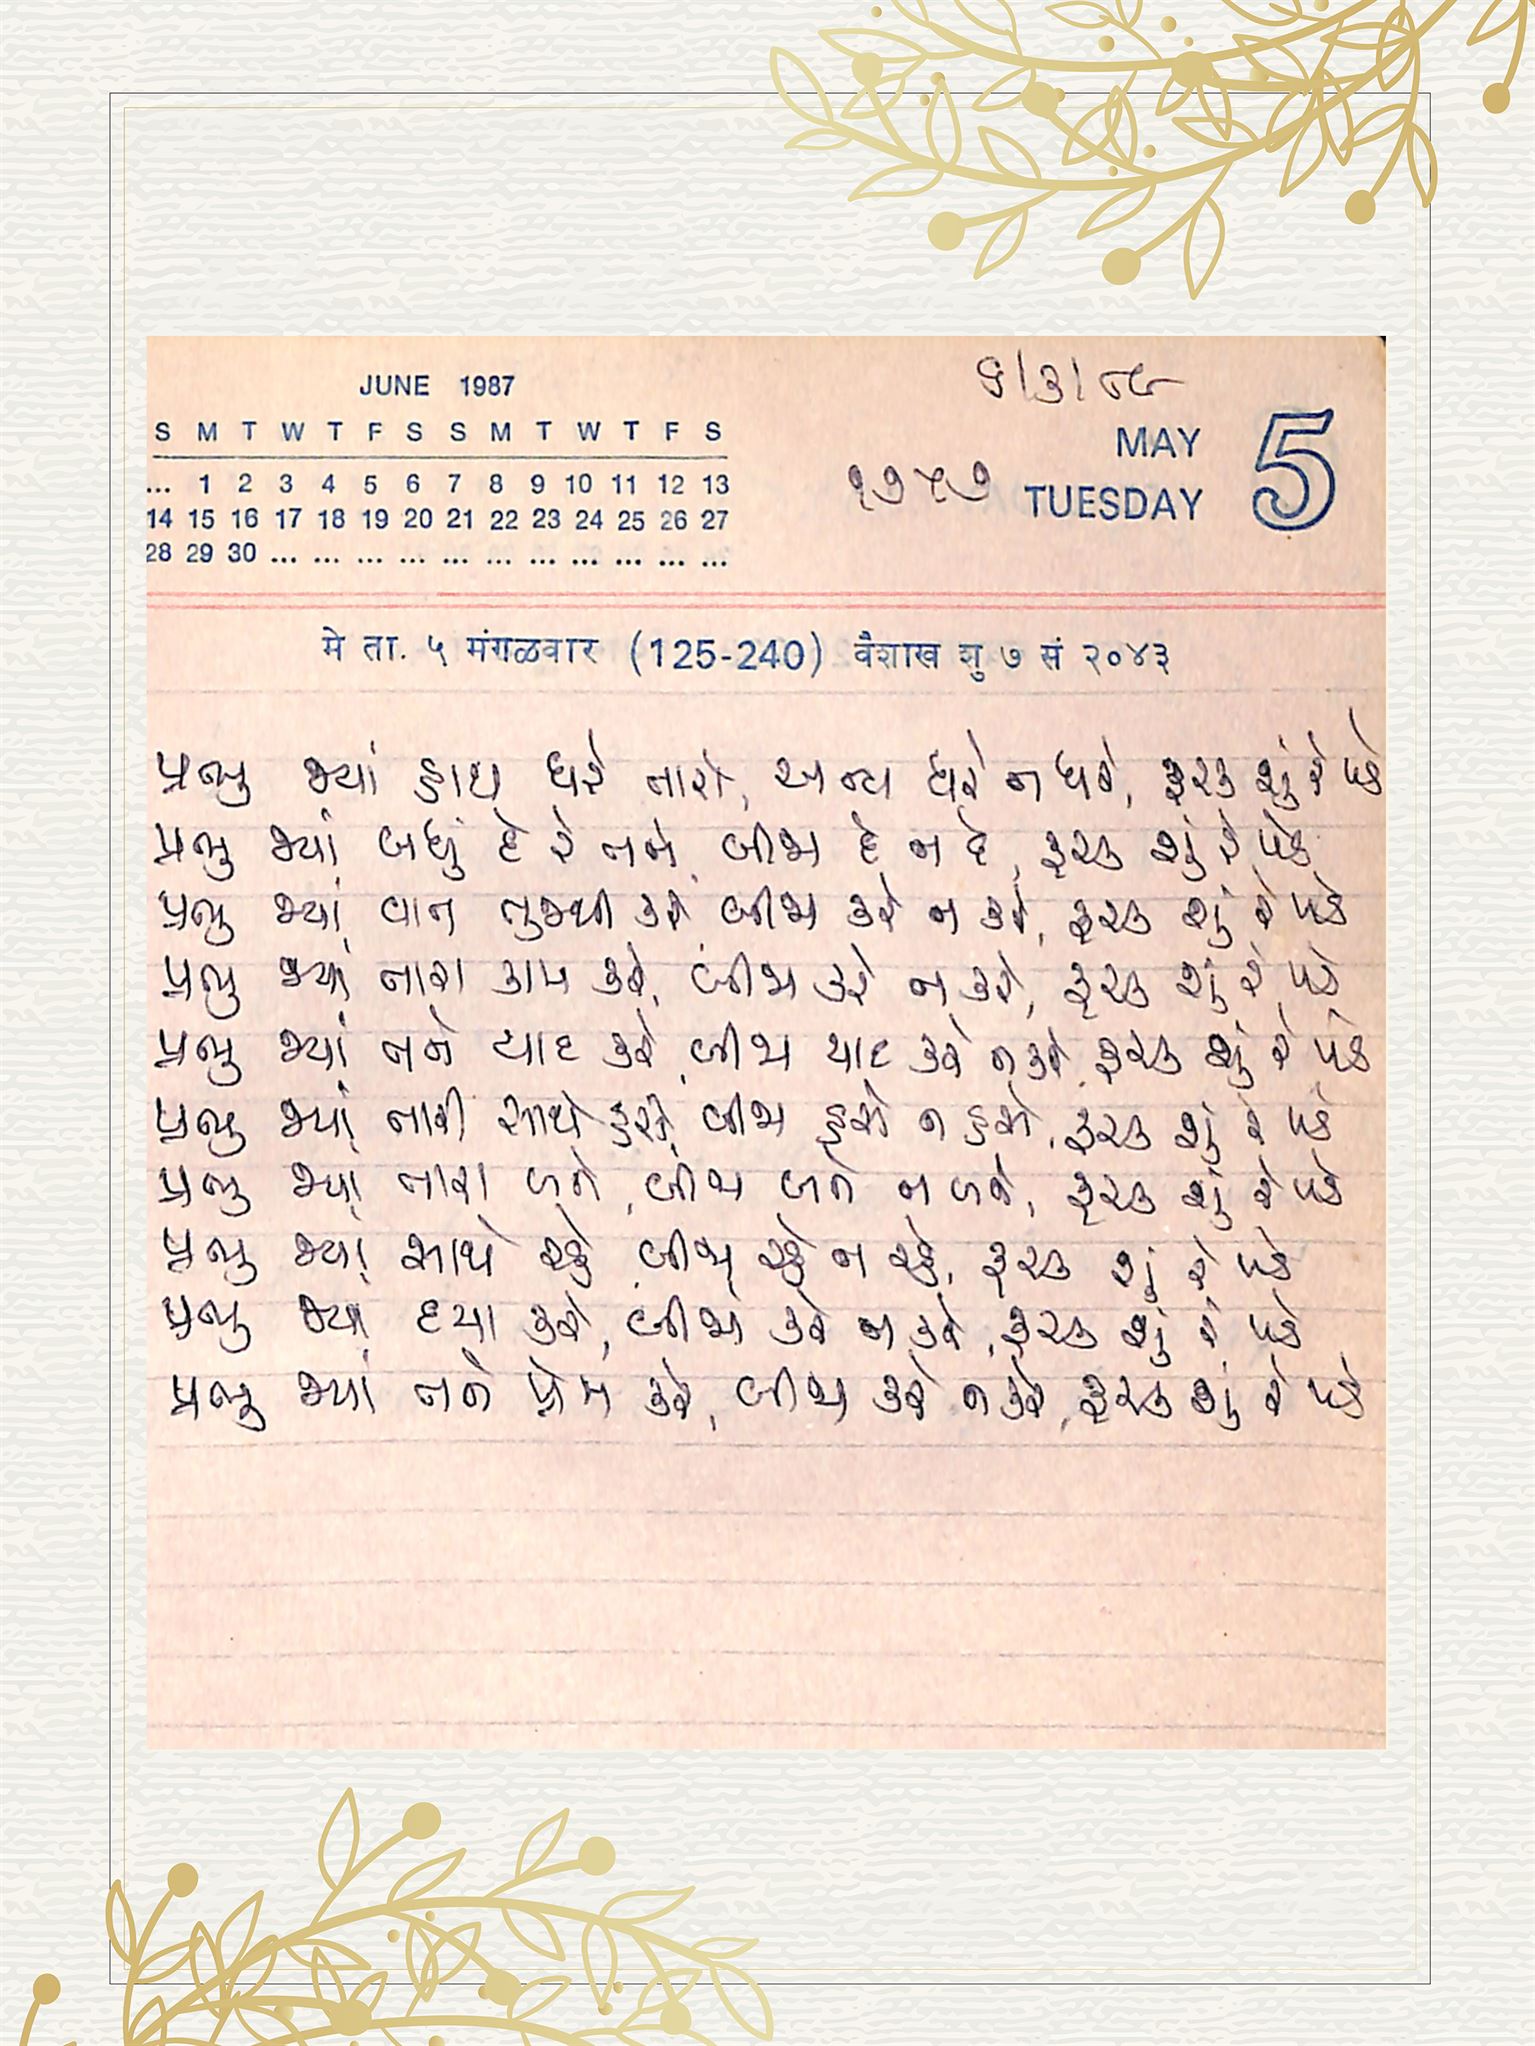 JUNE 1987
S M T W T F S S M T W T F S
... 1 2 3 4 5 6 7 8 9 10 11 12 13
14 15 16 17 18 19 20 21 22 23 24 25 26 27
28 29 30 ... ... ... ... ... ... ... ... ... ... ...
MAY
TUESDAY
5
૧૭૫૭
मे ता. ५ मंगळवार (125-240) वैशाख शु ७ सं २०४३
પ્રભુ જ્યાં હાથ ધરે તારો, અન્ય ધરે ન ધરે, ફરક શું રે પડે
પ્રભુ જ્યાં બધું દે રે તને, બીજા દે ન દે, ફરક શું રે પડે
પ્રભુ જ્યાં વાત તુજથી કરે બીજા કરે ન કરે, ફરક શું રે પડે
પ્રભુ જ્યાં તારા કામ કરે, બીજા કરે ન કરે, ફરક શું રે પડે
પ્રભુ જ્યાં તને યાદ કરે, બીજા યાદ કરે ન કરે, ફરક શું રે પડે
પ્રભુ જ્યાં તારી સાથે હસે, બીજા હસે ન હસે, ફરક શું રે પડે
પ્રભુ જ્યાં તારા બને, બીજા બને ન બને, ફરક શું રે પડે
પ્રભુ જ્યાં સાથે રહે, બીજા રહે ન રહે, ફરક શું રે પડે
પ્રભુ જ્યાં દયા કરે, બીજા કરે ન કરે, ફરક શું રે પડે
પ્રભુ જ્યાં તને પ્રેમ કરે, બીજા કરે ન કરે, ફરક શું રે પડે